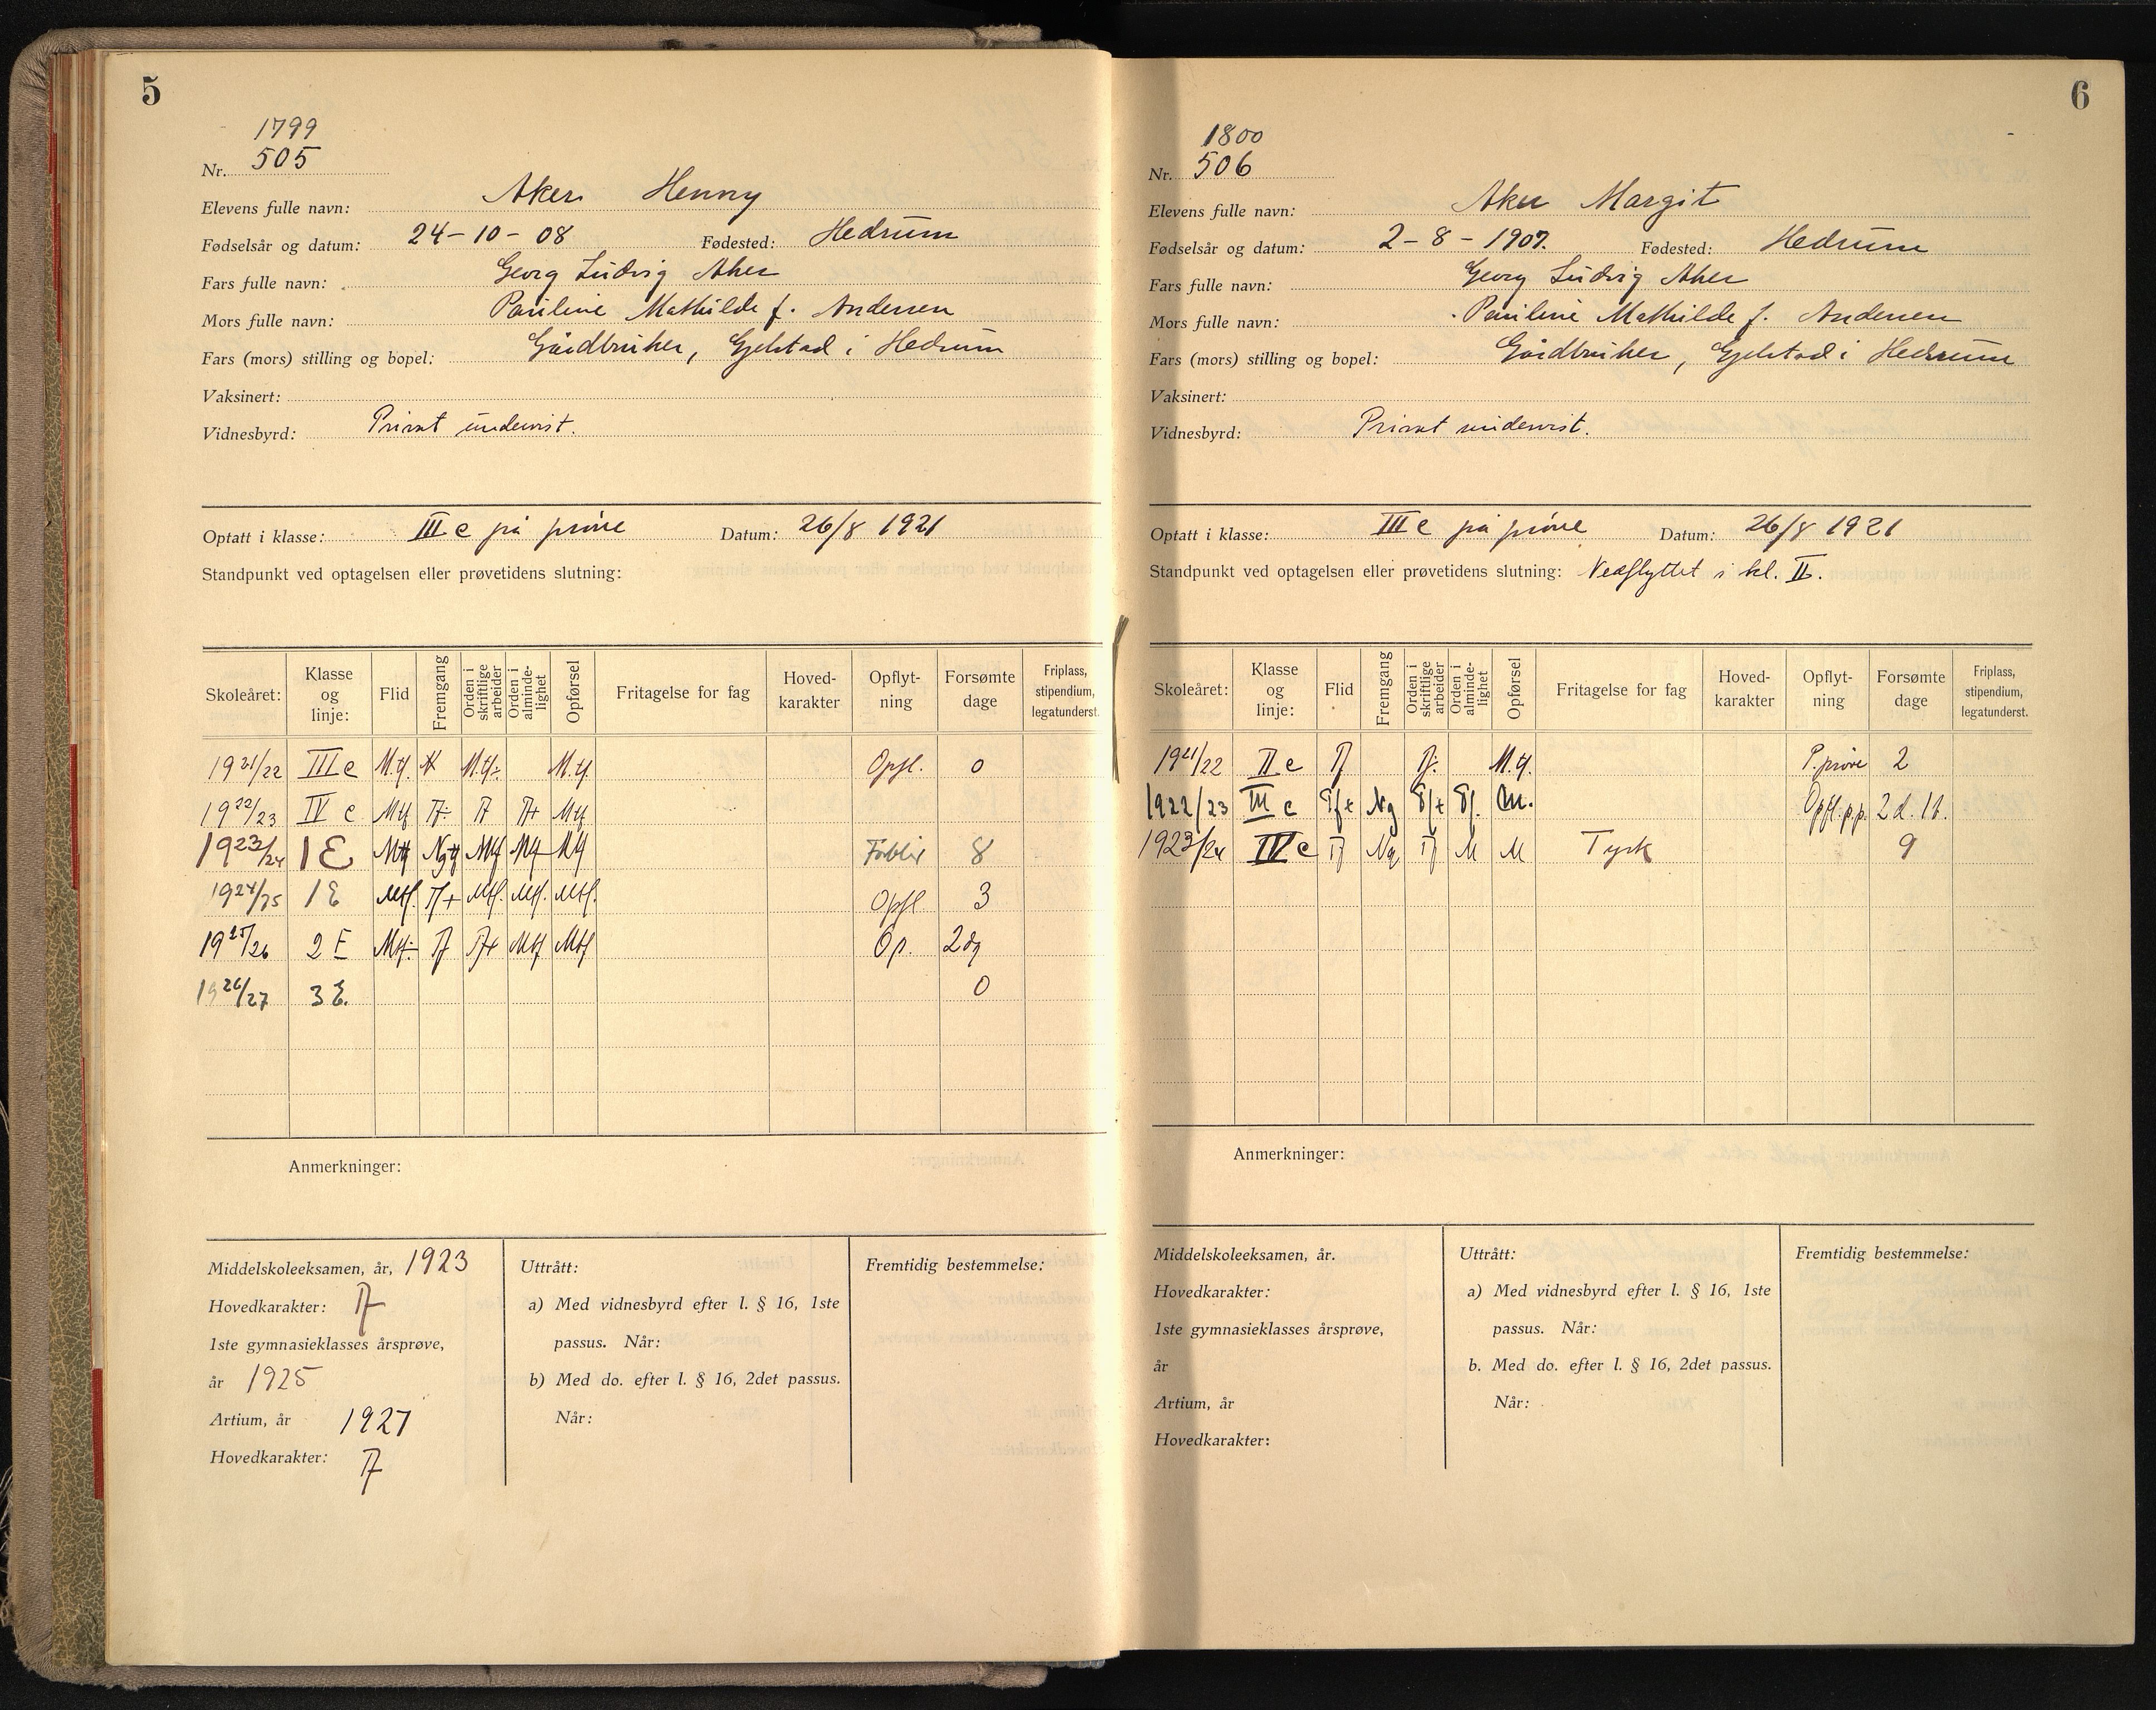 5
1799
Nr. 505
Elevens fulle navn: Aker Henny
Fødselsår og datum: 24-10-08 Fødested: Hedrum
Fars fulle navn: Georg Ludvig Aker
Mors fulle navn: Pauline Mathilde f. Andersen
Fars (mors) stilling og bopel: Gårdbruker, Gjelstad i Hedrum
Vaksinert:
Vidnesbyrd: Privat undervist.
Optatt i klasse: III c på prøve Datum: 26/8 1921
Standpunkt ved optagelsen eller prøvetidens slutning:
Skoleåret: Klasse og linje: Flid Fremgang Orden i skriftlige arbeider Orden i almindelighet Opførsel Fritagelse for fag Hovedkarakter Opflytning Forsømte dage Friplass, stipendium, legatunderst.
1921/22 III c M.tf. Mtf÷ M.tf. Opfl. 0
1922/23 IV c Mtf Tf÷ Tf Tf+ Mtf
1923/24 1E Mtf Mtf Mtf Mtf Forblir 8
1924/25 1E Mtf. Tf+ Mtf. Mtf. Mtf. Opfl 3
1925/26 2 E Mtf÷ Tf Tf+ Mtf Mtf Op. 2dg
1926/27 3 E. 0
Anmerkninger:
Middelskoleeksamen, år, 1923
Hovedkarakter: Tf
1ste gymnasieklasses årsprøve,
år 1925
Artium, år 1927
Hovedkarakter: Tf
Uttrått:
a) Med vidnesbyrd efter l. § 16, 1ste
passus. Når:
b) Med do. efter l. § 16, 2det passus.
Når:
Fremtidig bestemmelse:
6
1800
Nr. 506
Elevens fulle navn: Aker Margit
Fødselsår og datum: 2-8-1907. Fødested: Hedrum
Fars fulle navn: Georg Ludvig Aker
Mors fulle navn: Pauline Mathilde f. Andersen
Fars (mors) stilling og bopel: Gårdbruker, Gjelstad i Hedrum
Vaksinert:
Vidnesbyrd: Privat undervist.
Optatt i klasse: III c på prøve Datum: 26/8 1921
Standpunkt ved optagelsen eller prøvetidens slutning: Nedflyttet i kl. II.
Skoleåret: Klasse og linje: Flid Fremgang Orden i skriftlige arbeider Orden i almindelighet Opførsel Fritagelse for fag Hovedkarakter Opflytning Forsømte dage Friplass, stipendium, legatunderst.
1921/22 II c Tf Tf÷ M.tf. P. prøve 2
1922/23 III c Tf+ Ng Tf+ Tf. M. Opfl. p.p. 2 d. 1t.
1923/24 IV c Tf Ng Tf M M Tysk 9
Anmerkninger:
Middelskoleeksamen, år.
Hovedkarakter:
1ste gymnasieklasses årsprøve,
år
Artium, år
Hovedkarakter:
Uttrått:
a) Med vidnesbyrd efter l. § 16, 1ste
passus. Når:
b. Med do. efter l. § 16, 2det passus.
Når:
Fremtidig bestemmelse: